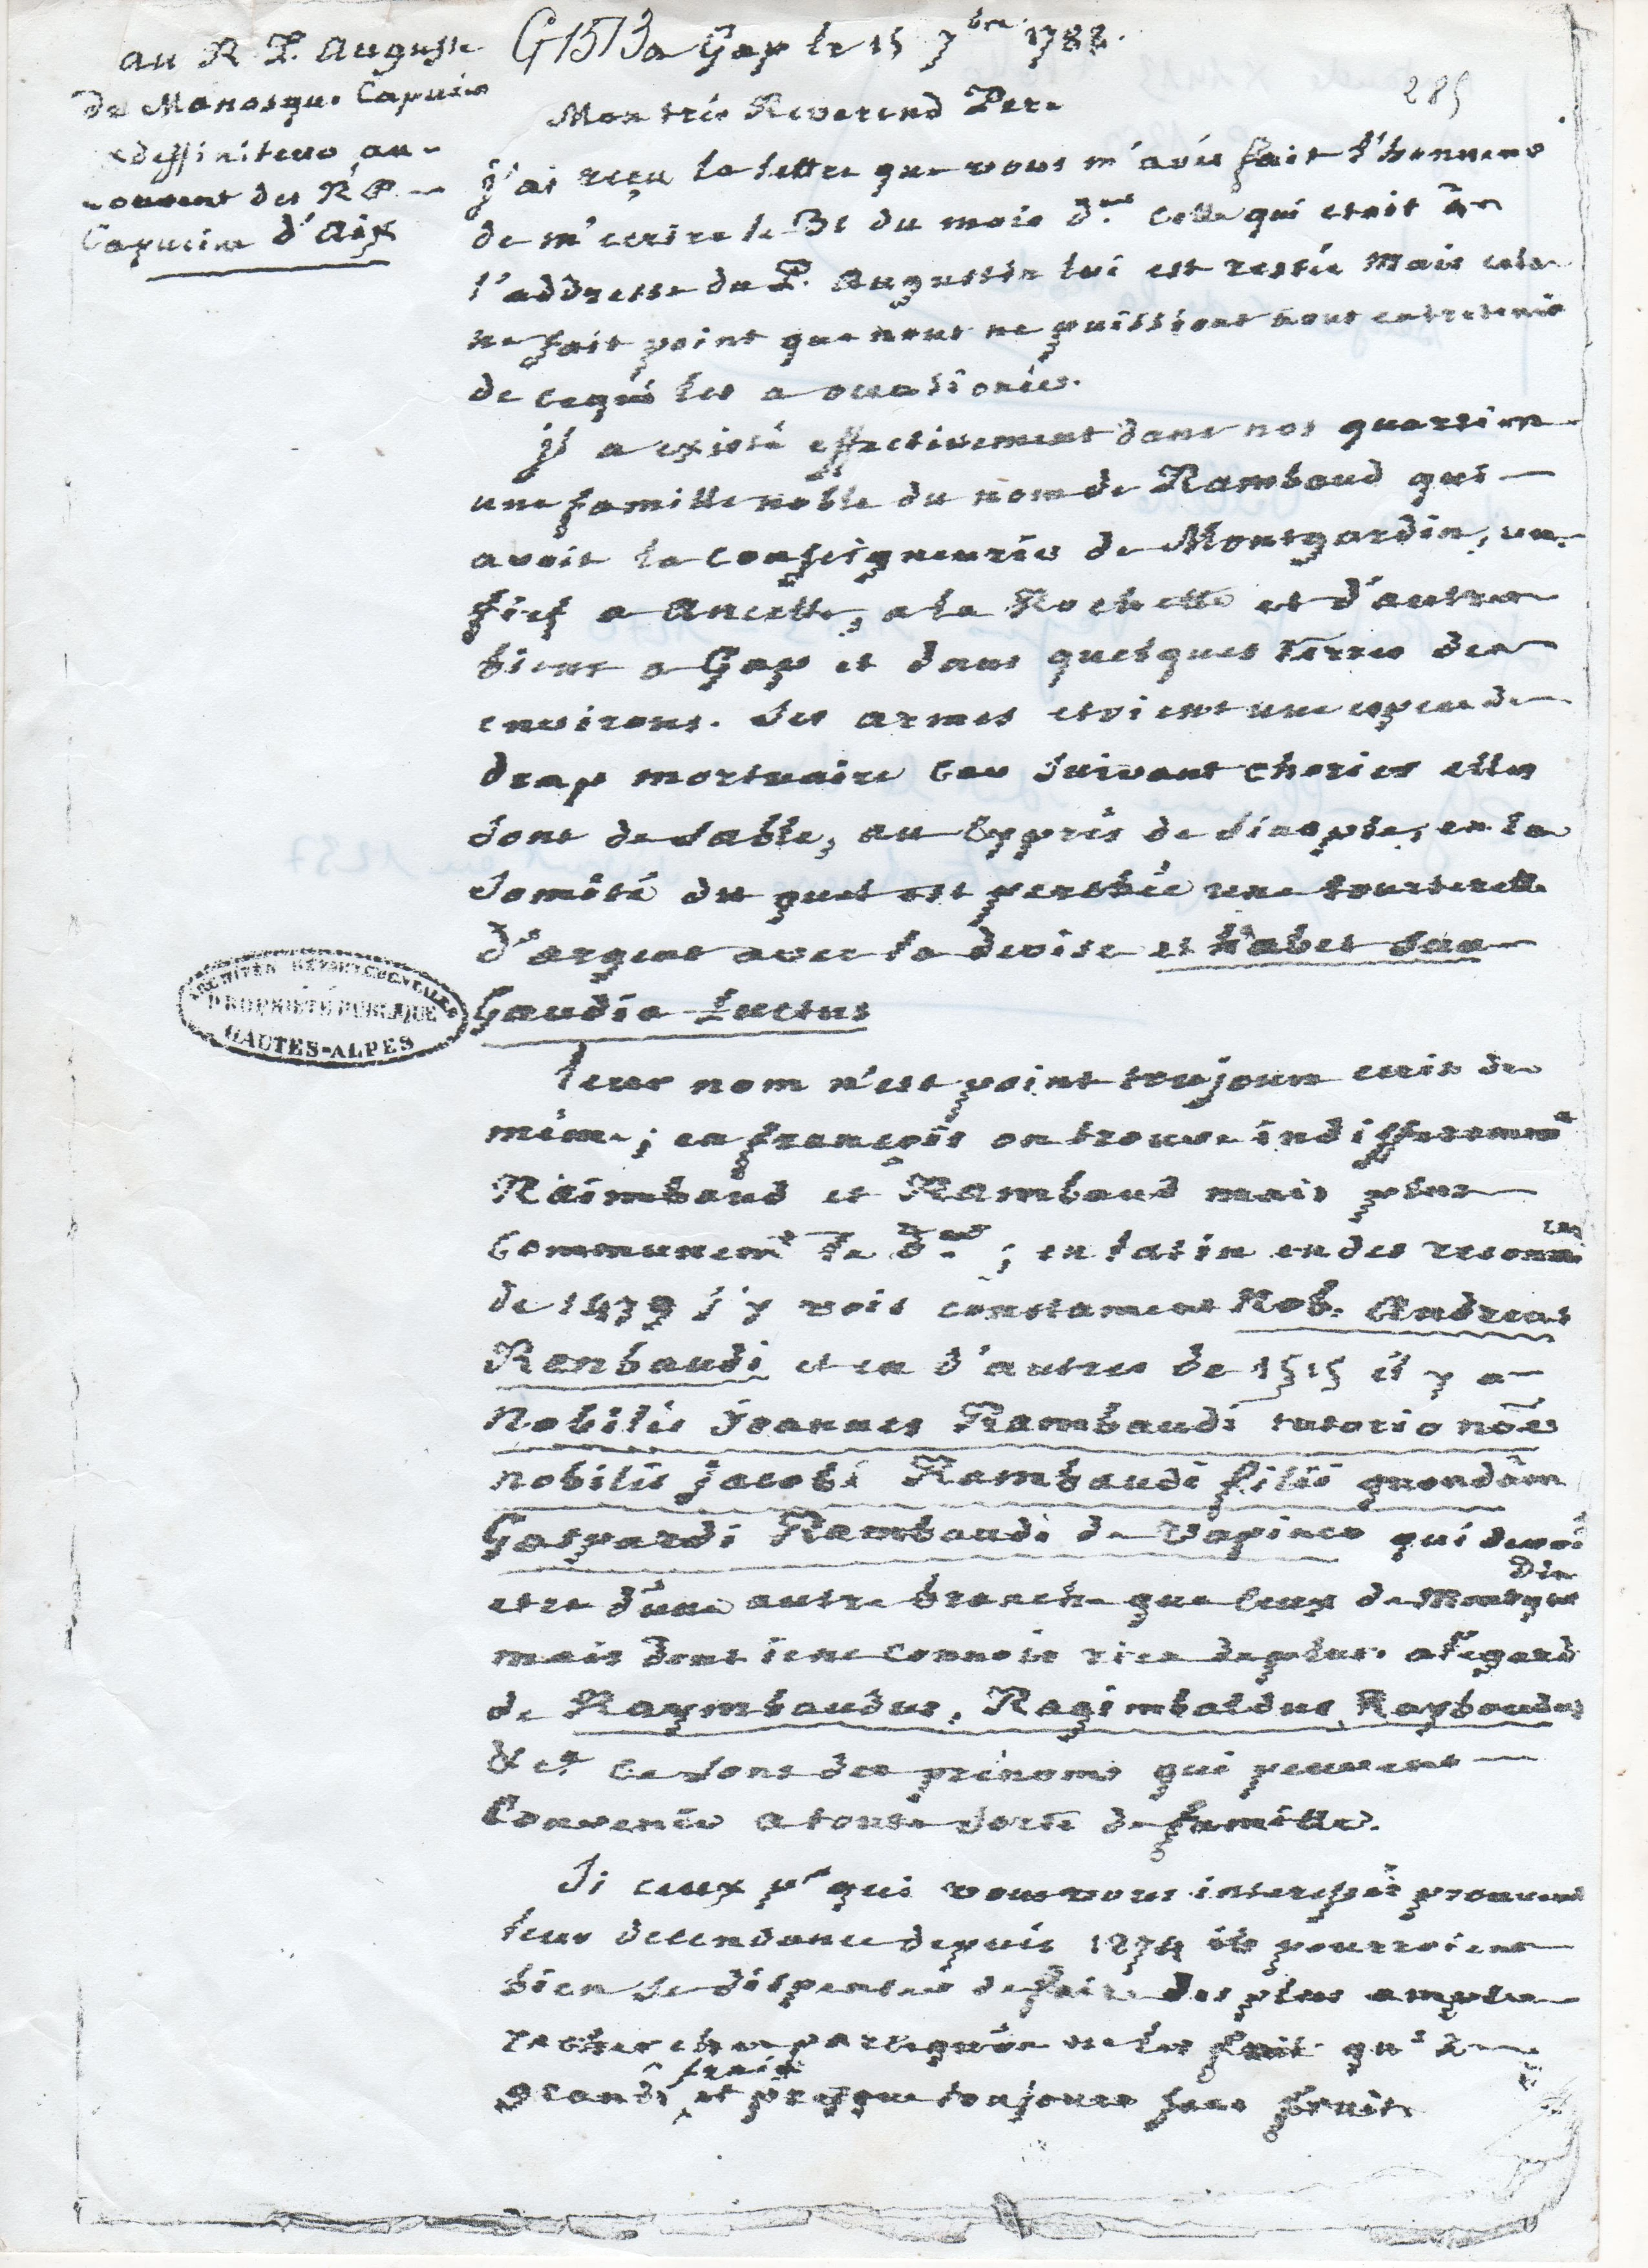 au R P. Auguste
de Manosque Capucin
exdeffiniteur au
couvent des RR PP
Capucins d'Aix
G 1573 a Gap le 15 7bre 1788.
285
Mon trés Reverend Pere
j'ai reçu la lettre que vous m'avés fait l'honneur
de m'ecrire le 31 du mois der. celle qui etoit a
l'addresse du P. Augustin lui est restée mais cela
ne fait point que nous ne puissions nous entretenir
de ce qui les a occasionées.
il a existé effectivement dans nos quartiers
une famille noble du nom de Rambaud qui
avoit la conseigneurie de Montgardin, un
fief a Ancelle, a la Rochette et d'autres
biens a Gap et dans quelques terres des
environs. Ses armes etoient une espece de
drap mortuaire car suivant chorier elles
sont de sable, au cyprés de sinople, en la
somité du quel est perchée une tourterelle
d'argent avec la devise et habet sua
Gaudia Luctus
ARCHIVES DEPARTEMENTALES
PROPRIETE PUBLIQUE
HAUTES-ALPES
leur nom n'est point toujours ecrit de
même; en françois on trouve indifferemmt
Raimbaud et Rambaud mais plus
communemt le der; en latin en des reconnces
de 1479 j'y vois constament Nob. Andreas
Ranbaudi et en d'autres de 1515 il y a
Nobilis Joannes Rambaudi tutorio nõe
nobilis jacobi Rambaudi filii quondam
Gaspardi Rambaudi de Vapinco qui devoit
etre d'une autre branche que ceux de Montgardin
mais dont je ne connois rien de plus. a l'egard
de Raymbaudus, Ragimbaldus, Raybaudus
&ca ce sont des prénoms qui peuvent
Convenir a toute sorte de famille.
Si ceux pr qui vous vous interessés prouvent
leur decendance depuis 1274 ils pourroient
bien se dispenser de faire des plus amples
recherches parcequ'on ne les fait qu'a
grands frais et presque toujours sans fruit.